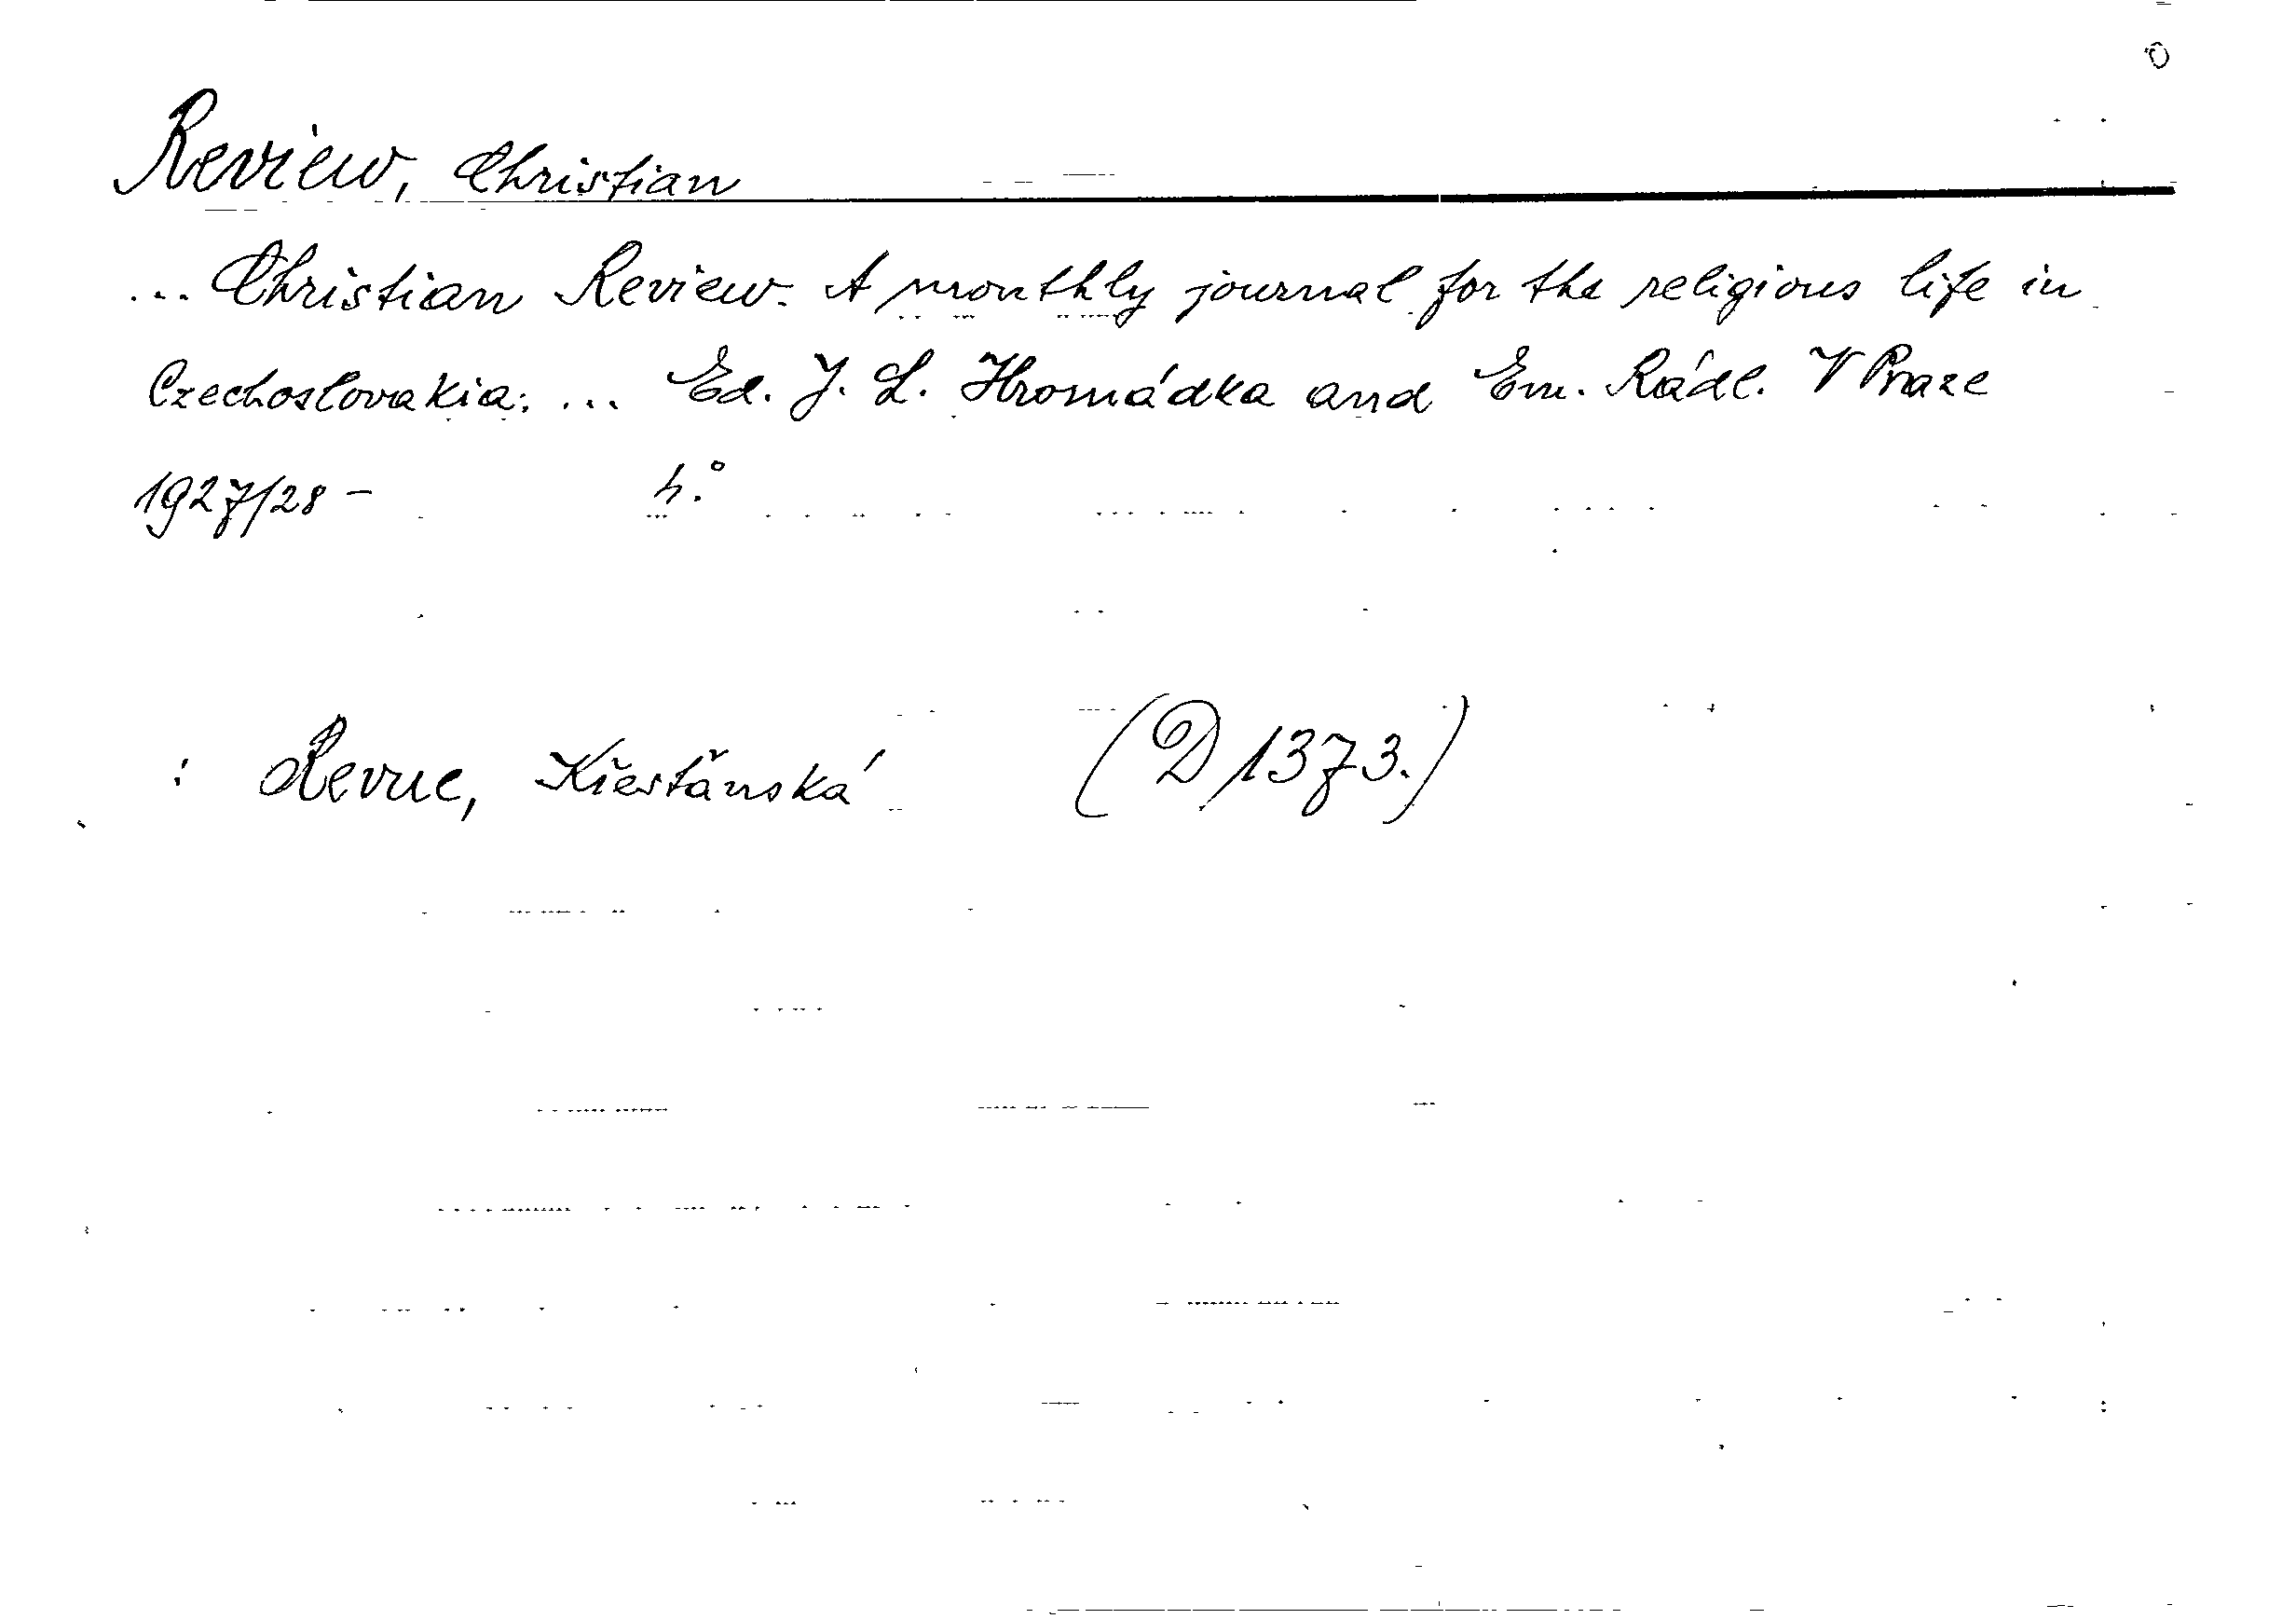 Review, Christian
... Christian Review. A monthly journal for the religious life in
Czechoslovakia; ... Ed. J. L. Hromádka and Em. Rádl. V Praze
1927/28 – 4.°
: Revue, Křesťanská (D 1373.)